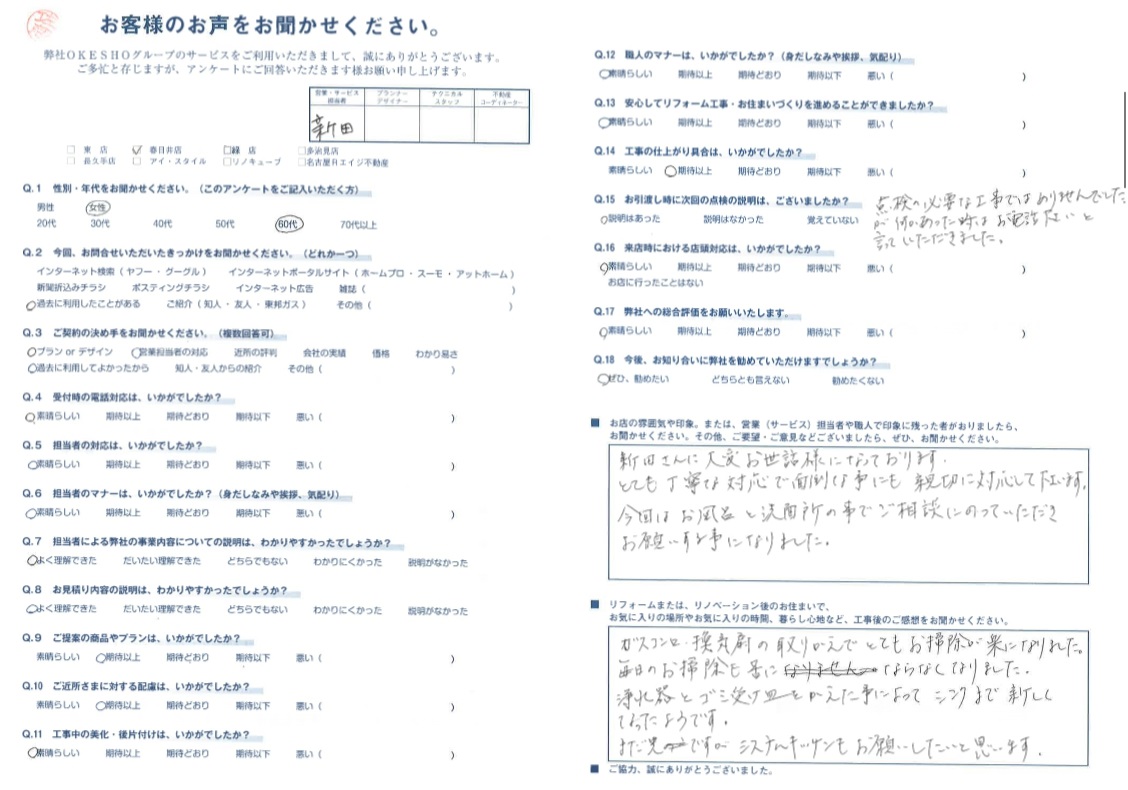 お客様のお声をお聞かせください。
弊社OKESHOグループのサービスをご利用いただきまして、誠にありがとうございます。
ご多忙と存じますが、アンケートにご回答いただきます様お願い申し上げます。
営業・サービス担当者 プランナーデザイナー テクニカルスタッフ 不動産コーディネーター
新田
□ 東 店 ☑ 春日井店 □緑 店 □多治見店
□ 長久手店 □ アイ・スタイル □リノキューブ □名古屋Rエイジ不動産
Q.1 性別・年代をお聞かせください。（このアンケートをご記入いただく方）
男性 女性
20代 30代 40代 50代 60代 70代以上
Q.2 今回、お問合せいただいたきっかけをお聞かせください。（どれか一つ）
インターネット検索（ ヤフー ・ グーグル ） インターネットポータルサイト（ ホームプロ ・ スーモ ・ アットホーム ）
新聞折込みチラシ ポスティングチラシ インターネット広告 雑誌（ ）
過去に利用したことがある ご紹介（ 知人 ・ 友人 ・ 東邦ガス ） その他（ ）
Q.3 ご契約の決め手をお聞かせください。（複数回答可）
プラン or デザイン 営業担当者の対応 近所の評判 会社の実績 価格 わかり易さ
過去に利用してよかったから 知人・友人からの紹介 その他（ ）
Q.4 受付時の電話対応は、いかがでしたか？
素晴らしい 期待以上 期待どおり 期待以下 悪い（ ）
Q.5 担当者の対応は、いかがでしたか？
素晴らしい 期待以上 期待どおり 期待以下 悪い（ ）
Q.6 担当者のマナーは、いかがでしたか？（身だしなみや挨拶、気配り）
素晴らしい 期待以上 期待どおり 期待以下 悪い（ ）
Q.7 担当者による弊社の事業内容についての説明は、わかりやすかったでしょうか？
よく理解できた だいたい理解できた どちらでもない わかりにくかった 説明がなかった
Q.8 お見積り内容の説明は、わかりやすかったでしょうか？
よく理解できた だいたい理解できた どちらでもない わかりにくかった 説明がなかった
Q.9 ご提案の商品やプランは、いかがでしたか？
素晴らしい 期待以上 期待どおり 期待以下 悪い（ ）
Q.10 ご近所さまに対する配慮は、いかがでしたか？
素晴らしい 期待以上 期待どおり 期待以下 悪い（ ）
Q.11 工事中の美化・後片付けは、いかがでしたか？
素晴らしい 期待以上 期待どおり 期待以下 悪い（ ）
Q.12 職人のマナーは、いかがでしたか？（身だしなみや挨拶、気配り）
素晴らしい 期待以上 期待どおり 期待以下 悪い（ ）
Q.13 安心してリフォーム工事・お住まいづくりを進めることができましたか？
素晴らしい 期待以上 期待どおり 期待以下 悪い（ ）
Q.14 工事の仕上がり具合は、いかがでしたか？
素晴らしい 期待以上 期待どおり 期待以下 悪い（ ）
Q.15 お引渡し時に次回の点検の説明は、ございましたか？
説明はあった 説明はなかった 覚えていない
点検の必要な工事ではありませんでした
が何かあった時はお電話下さいと
言っていただきました。
Q.16 来店時における店頭対応は、いかがでしたか？
素晴らしい 期待以上 期待どおり 期待以下 悪い（ ）
お店に行ったことはない
Q.17 弊社への総合評価をお願いいたします。
素晴らしい 期待以上 期待どおり 期待以下 悪い（ ）
Q.18 今後、お知り合いに弊社を勧めていただけますでしょうか？
ぜひ、勧めたい どちらとも言えない 勧めたくない
■ お店の雰囲気や印象。または、営業（サービス）担当者や職人で印象に残った者がおりましたら、
お聞かせください。その他、ご要望・ご意見などございましたら、ぜひ、お聞かせください。
新田さんに大変お世話様になっております。
とても丁寧な対応で面倒な事にも親切に対応して下さいます。
今回はお風呂と洗面所の事でご相談にのっていただき
お願いする事になりました。
■ リフォームまたは、リノベーション後のお住まいで、
お気に入りの場所やお気に入りの時間、暮らし心地など、工事後のご感想をお聞かせください。
ガスコンロ・換気扇の取りかえでとてもお掃除が楽になりました。
毎日のお掃除も苦に なりません ならなくなりました。
浄水器とゴミ受け皿とかえた事によってシンクまで新しく
なったようです。
まだ先ですがシステムキッチンもお願いしたいと思います。
■ ご協力、誠にありがとうございました。